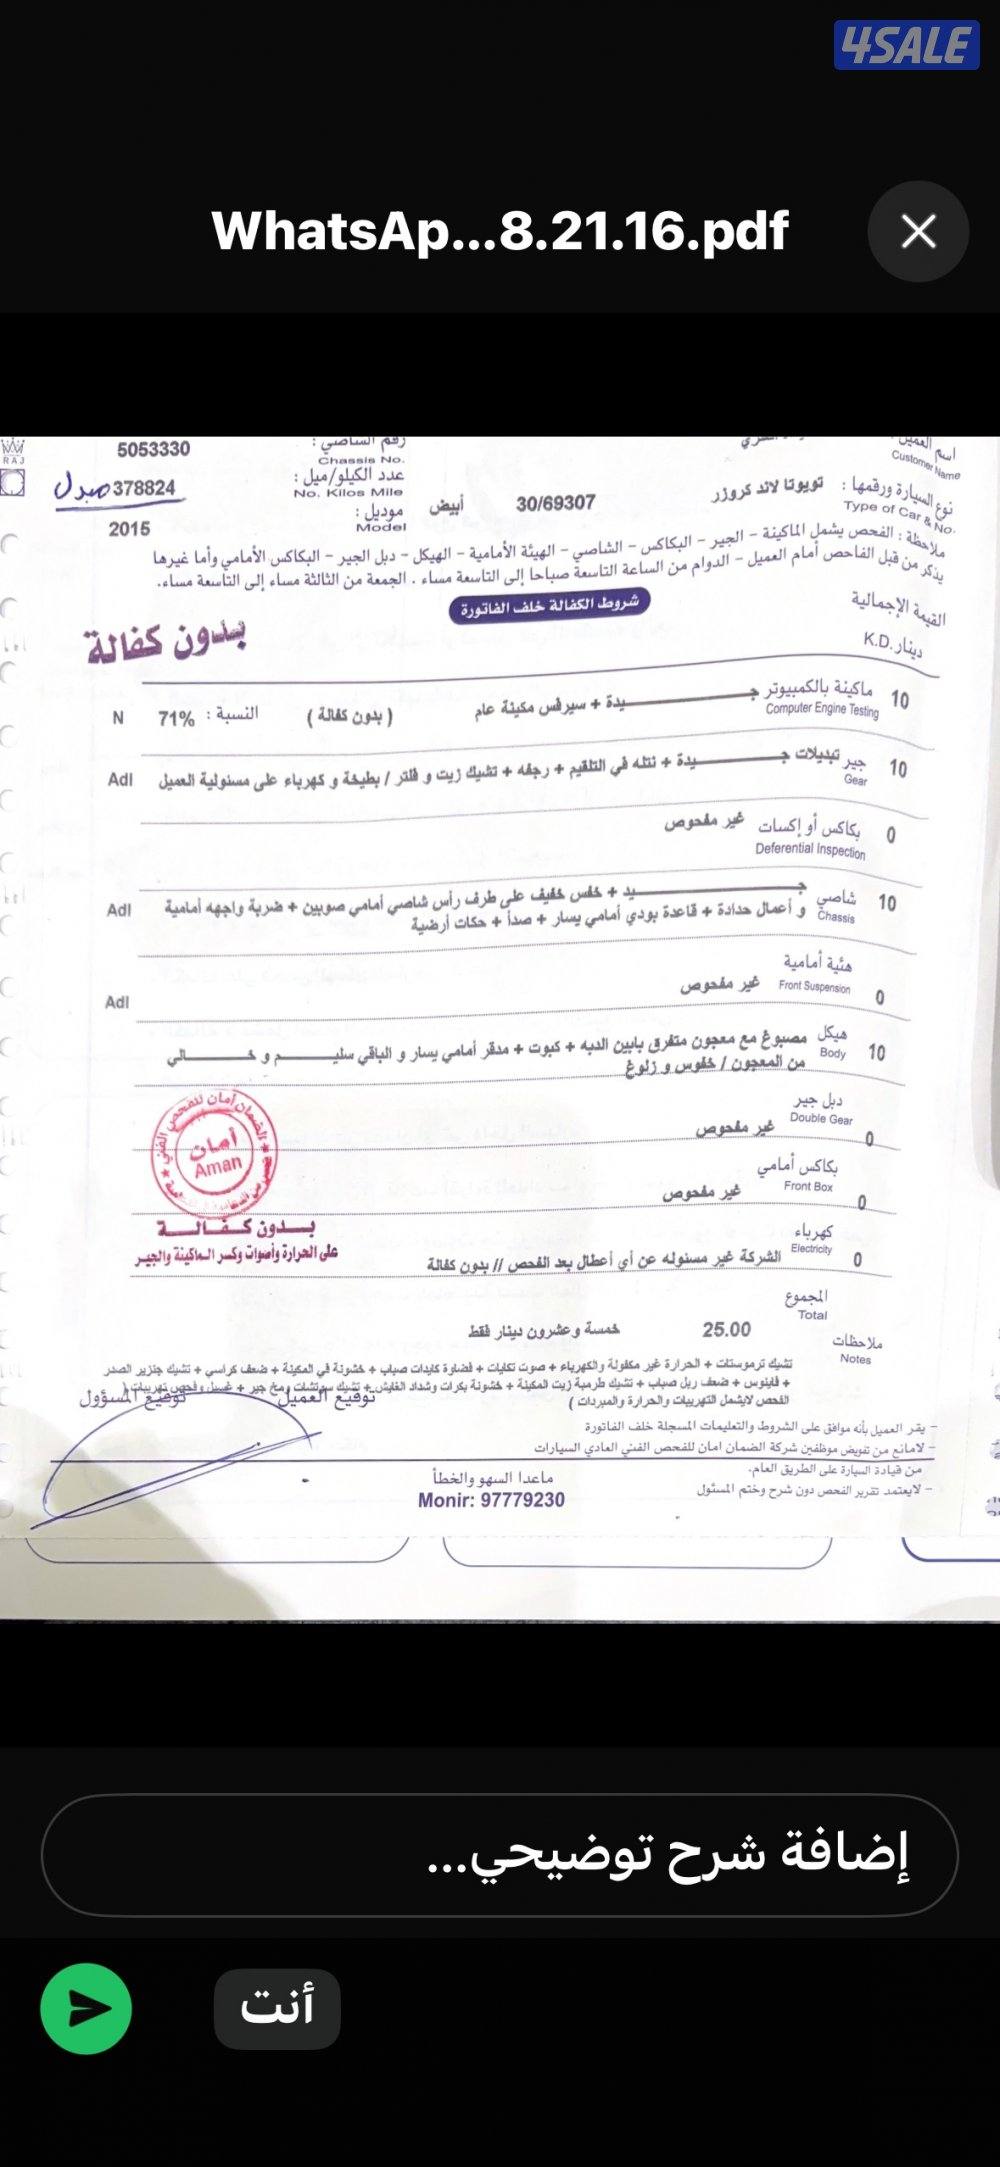 4SALE
WhatsAp...8.21.16.pdf
RAJ
اسم العميل :
Customer Name
رقم الشاصي :
Chassis No.
5053330
نوع السيارة ورقمها :
Type of Car & No.
تويوتا لاند كروزر
30/69307
أبيض
عدد الكيلو/ميل :
No. Kilos Mile
378824 مبدل
موديل :
Model
2015
ملاحظة : الفحص يشمل الماكينة - الجير - البكاكس - الشاصي - الهيئة الأمامية - الهيكل - دبل الجير - البكاكس الأمامي وأما غيرها
يذكر من قبل الفاحص أمام العميل - الدوام من الساعة التاسعة صباحا إلى التاسعة مساء . الجمعة من الثالثة مساء إلى التاسعة مساء.
شروط الكفالة خلف الفاتورة
القيمة الإجمالية
دينار K.D.
بدون كفالة
10 ماكينة بالكمبيوتر جـــيدة + سيرفس مكينة عام ( بدون كفالة ) النسبة : 71% N
Computer Engine Testing
10 جير تبديلات جـــيدة + نتله في التلقيم + رجفه + تشيك زيت و فلتر / بطيخة و كهرباء على مسئولية العميل Adl
Gear
0 بكاكس أو إكسات غير مفحوص
Deferential Inspection
10 شاصي جـــيد + خفس خفيف على طرف رأس شاصي أمامي صوبين + ضربة واجهه أمامية Adl
Chassis و أعمال حدادة + قاعدة بودي أمامي يسار + صدأ + حكات أرضية
0 هيئة أمامية غير مفحوص Adl
Front Suspension
10 هيكل مصبوغ مع معجون متفرق بابين الدبه + كبوت + مدقر أمامي يسار و الباقي سليـــم و خـــالي
Body من المعجون / خفوس و زلوغ
0 دبل جير غير مفحوص
Double Gear
0 بكاكس أمامي غير مفحوص
Front Box
0 كهرباء الشركة غير مسئوله عن أي أعطال بعد الفحص // بدون كفالة
Electricity
أمان
Aman
بـــدون كـفـالـــة
على الحرارة وأصوات وكسر الماكينة والجير
المجموع
Total
25.00 خمسة وعشرون دينار فقط
ملاحظات
Notes
تشيك ترموستات + الحرارة غير مكفولة والكهرباء + صوت تكايات + قضاوة كايدات صباب + خشونة في المكينة + ضعف كراسي + تشيك جنزير الصدر
+ فاينوس + ضعف ربل صباب + تشيك طرمبة زيت المكينة + خشونة بكرات وشداد القايش + تشيك سوتشات ومخ جير + غسيل وفحص تهريبات (
الفحص لايشمل التهريبات والحرارة والمبردات )
توقيع العميل
توقيع المسؤول
- يقر العميل بأنه موافق على الشروط والتعليمات المسجلة خلف الفاتورة
- لامانع من تفويض موظفين شركة الضمان امان للفحص الفني العادي السيارات
من قيادة السيارة على الطريق العام.
- لايعتمد تقرير الفحص دون شرح وختم المسئول
ماعدا السهو والخطأ
Monir: 97779230
إضافة شرح توضيحي...
أنت